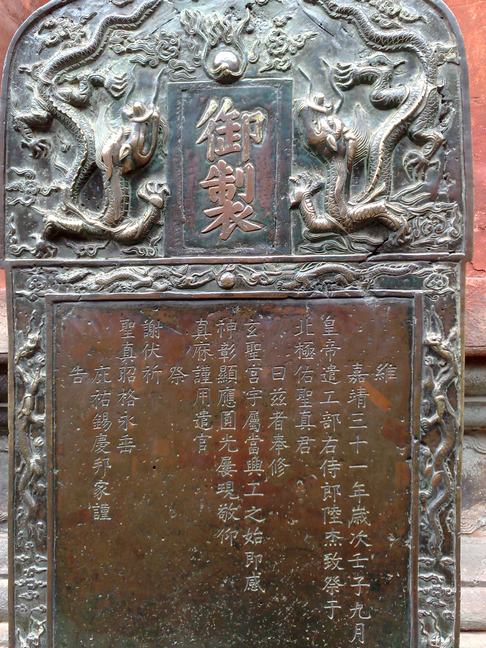 御製
維
嘉靖三十一年歲次壬子九月
皇帝遣工部右侍郎陸杰致祭于
北極佑聖真君
曰兹者奉修
玄聖宮宇屬當興工之始即感
神彰顯應圓光屢現敬仰
真庥謹用遣官
祭
謝伏祈
聖真昭格永垂
庇祐錫慶邦家謹
告